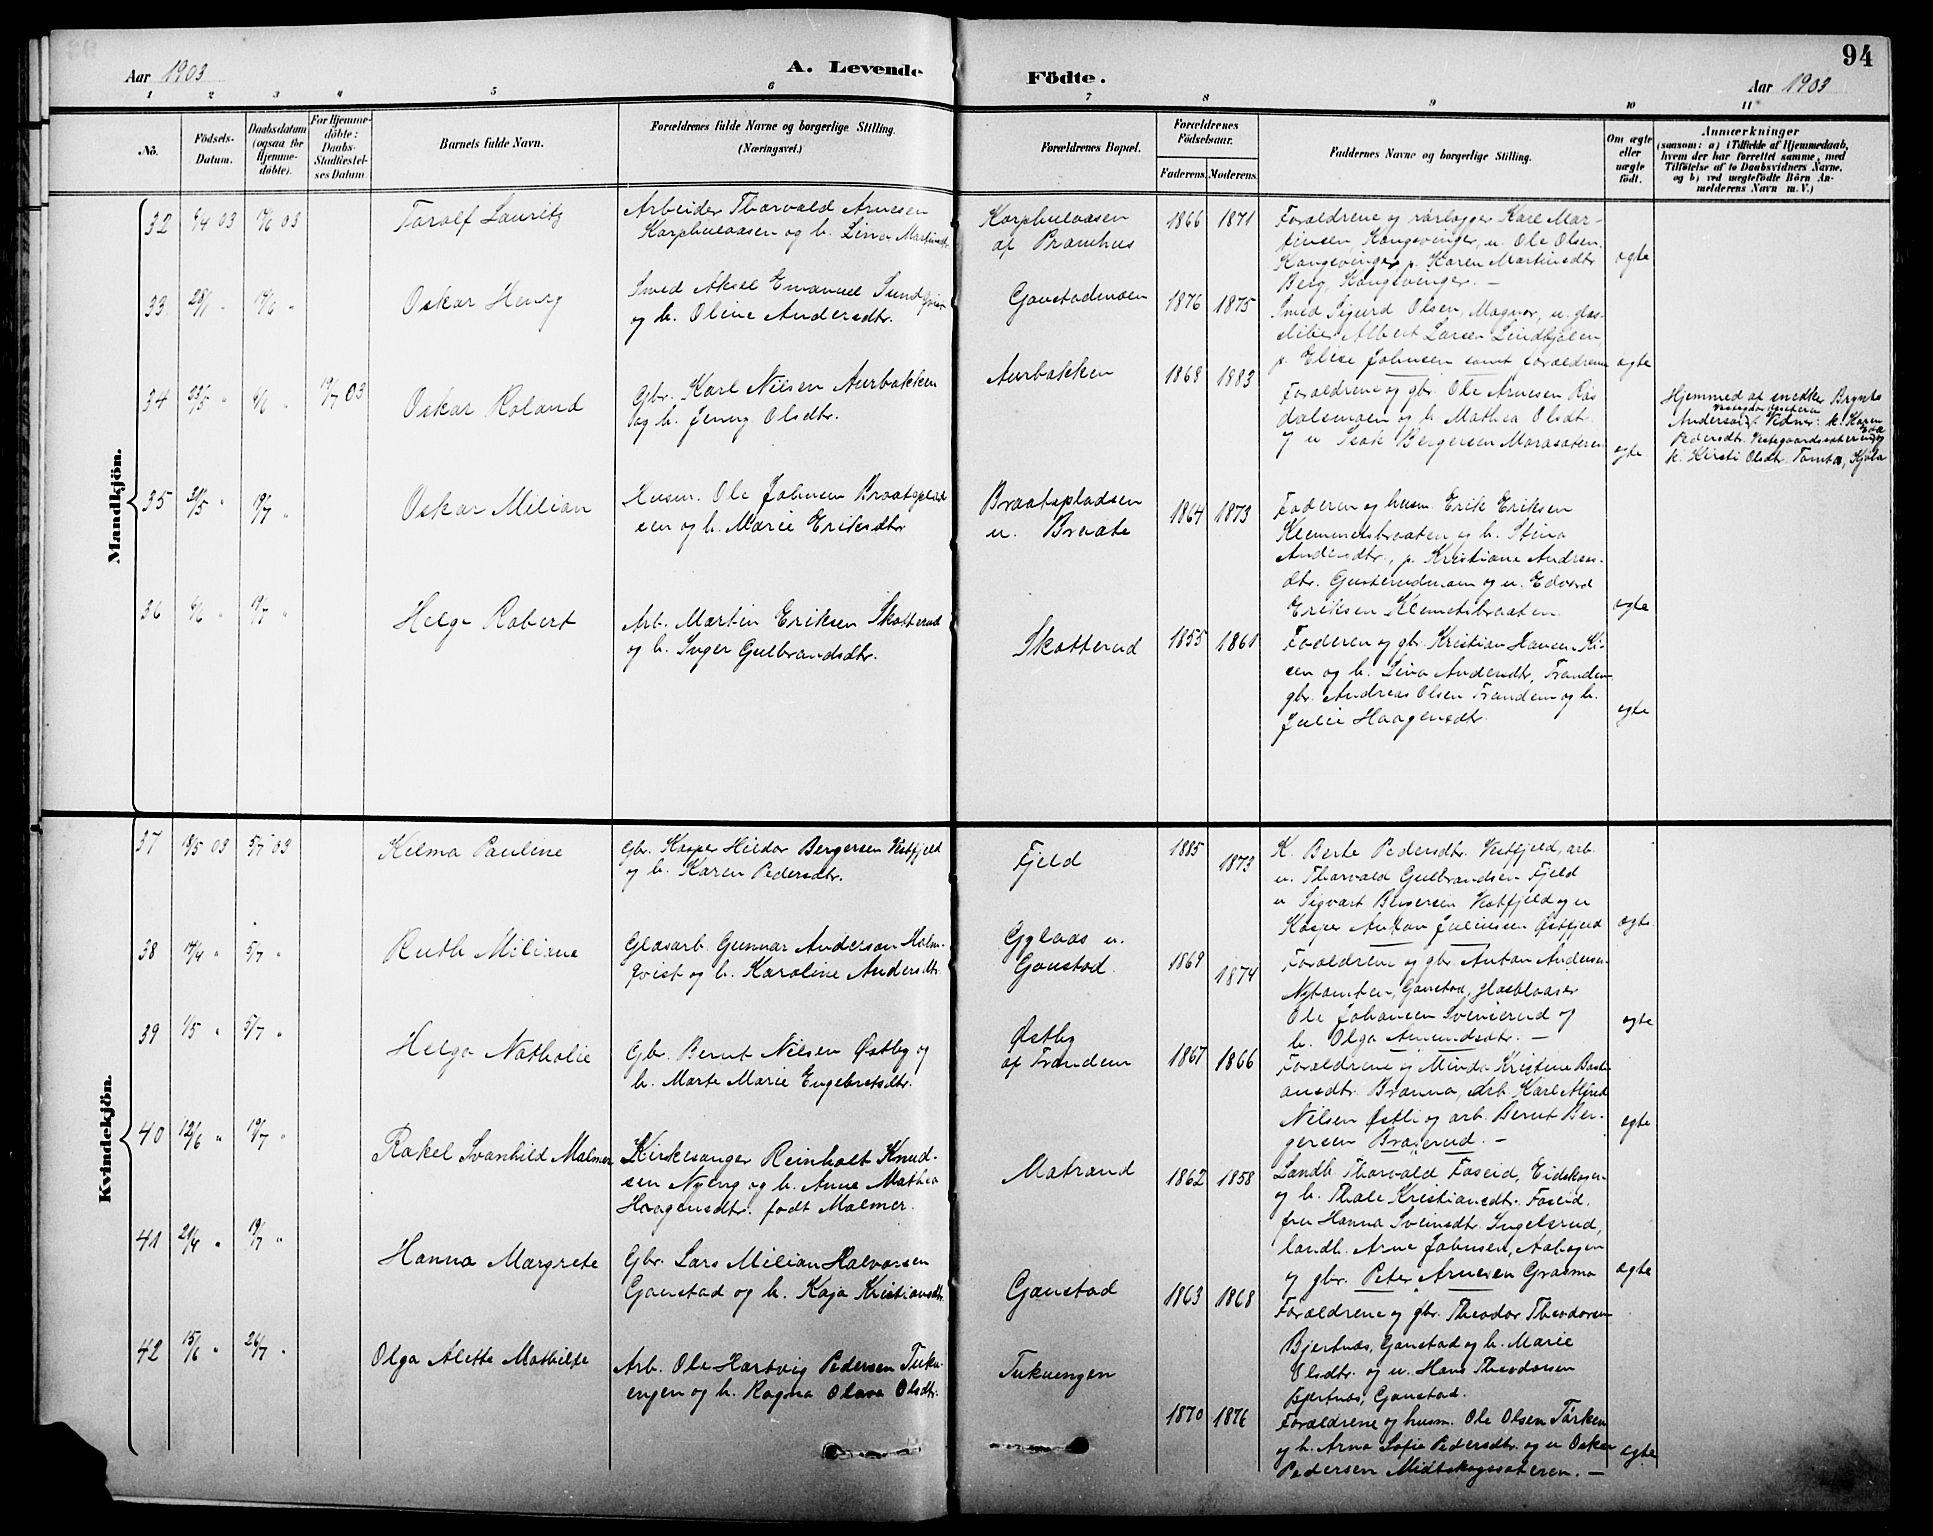 94
Aar 1903
A. Levende
Födte.
Aar 1903
1 2 3 4 5 6 7 8 9 10 11
No.
Födsels-
Datum.
Daabsdatum
(ogsaa for
Hjemme-
döbte).
For Hjemme-
döbte:
Daabs-
Stadfæstel-
ses Datum
Barnets fulde Navn.
Forældrenes fulde Navne og borgerlige Stilling.
(Næringsvei.)
Forældrenes Bopæl.
Forældrenes
Födselsaar.
Faderens. Moderens.
Faddernes Navne og borgerlige Stilling.
Om ægte
eller
uægte
født.
Anmærkninger
(saasom: a) i Tilfælde af Hjemmedaab,
hvem der har forrettet samme, med
Tilföielse af to Daabsvidners Navne,
og b) ved uægtefödte Börn An-
melderens Navn m. V.)
Mandkjön.
32
03
03
Torolf Lauritz
Arbeider Thorvald Arnesen
Korphulaasen og h. Lina
Korphulaasen
af Pramhus
1866 1871
Forældrene og rørlægger Karl Mar-
tinsen, Kongsvinger, u. Ole Olsen
Kongsvinger, p. Karen Martinsdtr
Berg, Kongsvinger. —
ægte
33
28/1 "
Oskar Henry
Smed Aksel Emanuel
og h. Oline Andersdtr.
Gaustadmoen
1876 1875
Smed Sigurd Olsen, Magnor, u. glas-
sliber Albert Larsen
p. Elise Johnsen samt forældrene
ægte
34
23/5 "
19/7 03
Oskar Roland
Gbr. Karl Nilsen Aurbakken
og h. Jenny Olsdtr.
Aurbakken
1868 1883
Forældrene og gbr. Ole Arnesen
og h. Mathea Olsdt.
og u Isak Bergersen
ægte
Hjemmed af snedker
k. Kirsti Olsdt.
35
21/5 "
19/7 "
Oskar Milian
Husm. Ole Johnsen Braateplad-
sen og h. Marie Eriksdtr
Braatepladsen
u. Braate
1864 1873
Faderen og husm. Erik Eriksen
Klemmetsbraaten og h. Stina
Andersdtr., p. Kristiane Andreas-
dtr. Gusterudmoen og u. Edvard
Eriksen Klemetsbraaten.
ægte
36
6/6 "
19/7 "
Helge Robert
Arb. Martin Eriksen Skotterud
og h. Inger Gulbrandsdtr.
Skotterud
1855 1861
Faderen og gbr. Kristian Hansen
sen og h. Lina Andersdtr, Trandem
gbr. Andreas Olsen Trandem og h.
Julie Haagensdtr.
ægte
Kvindekjön.
37
18/5 03
5/7 03
Hilma Pauline
Gbr. Kasper Hildor Bergersen Vestfjeld
og h. Karen Pedersdtr.
Fjeld
1885 1873
K. Berte Pedersdtr. Vestfjeld, arb.
u. Thorvald Gulbrandsen Fjeld
u Sigvart Bergersen Vestfjeld og u
Kasper Anton Juliussen Østfjeld
ægte
38
17/4 "
5/7 "
Ruth Miliane
Glasarb. Gunnar Anderson Malm-
qvist og h. Karoline Andersdtr.
Gylaas u.
Gaustad.
1869 1874
Forældrene og gbr. Anton Andersen
Nytomten, Gaustad, glasblaaser
Ole Johansen Svenserud og
h. Olga Amundsdtr. —
ægte
39
1/5 "
5/7 "
Helga Nathalie
Gbr. Bernt Nilsen Østby og
h. Marte Marie Engebretsdtr.
Østby
af Trandem
1867 1866
Forældrene og Minda Kristine Basti-
ansdtr. Branna, arb. Karl Alfred
Nilsen Østli og arb. Bernt Ber-
gersen Braserud. —
ægte
40
12/6 "
19/7 "
Rakel Svanhild Malmer
Kirkesanger Reinholt Knud-
sen Nyeng og h. Anne Mathea
Haagensdtr. født Malmer.
Matrand
1862 1858
Landh. Thorvald Foseid, Eidskogen
og h. Thale Kristiansdtr. Foseid.
fru Hanna Svensdtr. Ingelsrud,
landh. Arne Johnsen, Aabogen
og gbr. Peter Arnesen Grasmo
ægte
41
21/4 "
19/7 "
Hanna Margrete
Gbr. Lars Milian Halvorsen
Gaustad og h. Kaja Kristiansdtr.
Gaustad
1863 1868
Forældrene og gbr. Theodor Theodorsen
Bjertnæs, Gaustad og h. Marie
Olsdtr. og u. Hans Theodorsen
Bjertnæs, Gaustad.
42
15/6 "
26/7 "
Olga Alette Mathilde
Arb. Ole Hartvig Pedersen Tuku-
engen og h. Ragna Olava Olsdtr.
Tukuengen
1870 1876
Forældrene og husm. Ole Olsen Tørken
og h. Arna Sofie Pedersdtr. og u Oskar
Pedersen Midtskogsæteren. —
ægte